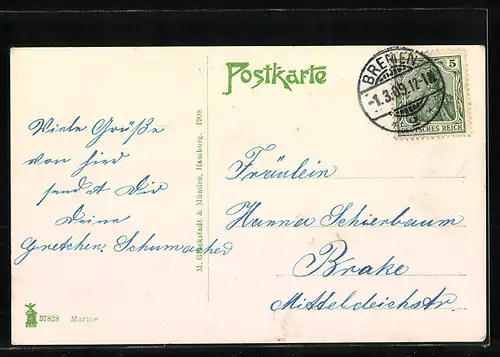 Postkarte
BREMEN
-1.3.09.12-1N.
5
DEUTSCHES REICH
Viele Grüße
von hier
sendet Dir
Deine
Gretchen Schumacher
M. Glückstadt & Münden, Hamburg. 1908
Fräulein
Hanna Schierbaum
Brake
Mitteldeichstr
37828 Marine